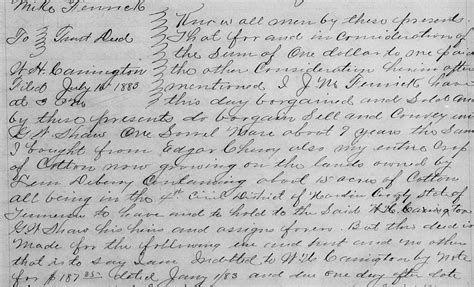 Mike Fenrick
To } Trust Deed
W. H. Carrington
Filed July 18 1883
at 3 PM
Know all men by these presents
That for and in Consideration of
the Sum of One dollar to me paid
the other Consideration herein after
mentioned I J. M. Fenrick have
this day bargained and Sold and
by these presents do bargain Sell and Convey unto
G W Shaw One Sorrel Mare about 7 years the Same
I bought from Edgar Cherry also my entire Crop
of Cotton now growing on the lands owned by
Lem Deberry Containing about 15 acres of Cotton
all being in the 4th Civil District of Hardin County State of
Tennessee to have and to hold to the Said W. H. Carrington
G W Shaw his heirs and assigns forever But this deed is
Made for the following use and trust and no other
that is to say I am Indebted to W H Carrington by Note
for $187 dated Jany 1/83 and due one day after date